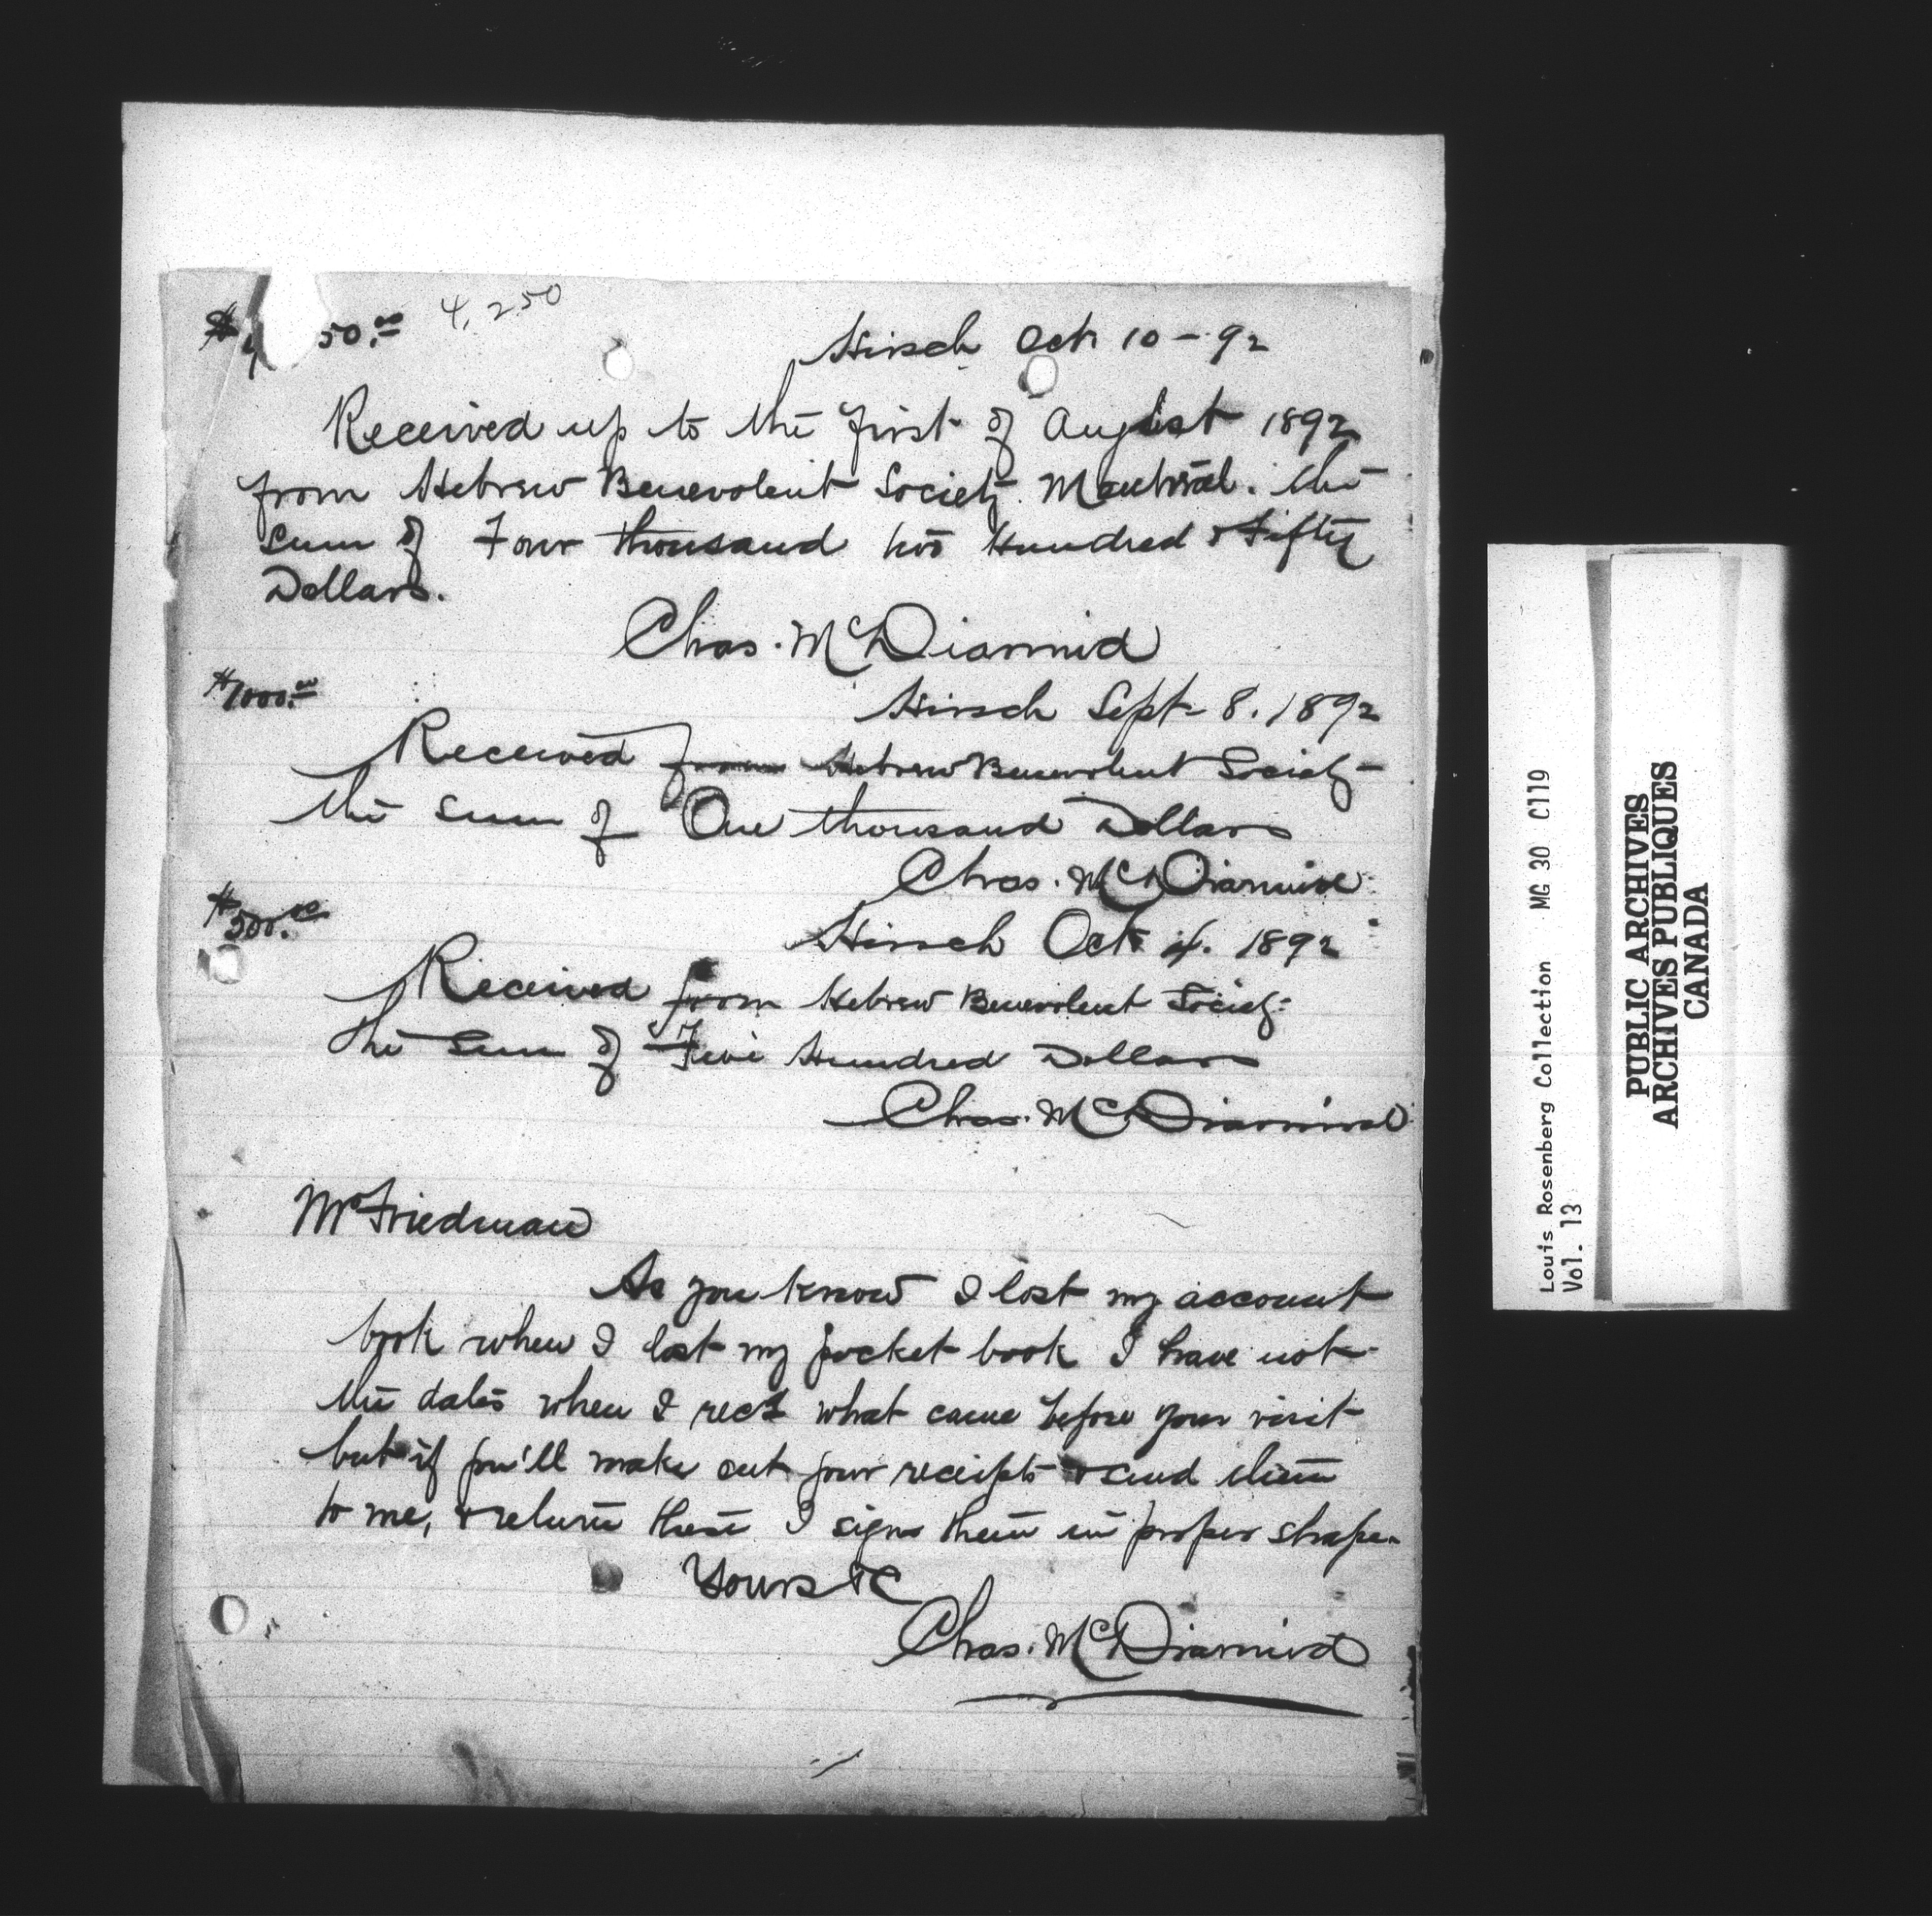 $4 50.00 4,250
Hirsch Oct 10 - 92
Received up to the first of August 1892
from Hebrew Benevolent Society. Montreal. the
sum of Four thousand two Hundred & Fifty
Dollars.
Chas. McDiarmid
$1000.00
Hirsch Sept 8. 1892
Received from Hebrew Benevolent Society
the sum of One thousand Dollars
Chas. McDiarmid
$500.00
Hirsch Oct 4. 1892
Received from Hebrew Benevolent Society
the sum of Five Hundred Dollars
Chas. McDiarmid
Mr Friedman
As you know I lost my account
book when I lost my pocket book I have not
the dates when I recd what came before your visit
but if you'll make out your receipts & send them
to me, & return these I sign them in proper shape.
Yours &c
Chas. McDiarmid
Louis Rosenberg Collection MG 30 C119
Vol. 13
PUBLIC ARCHIVES
ARCHIVES PUBLIQUES
CANADA